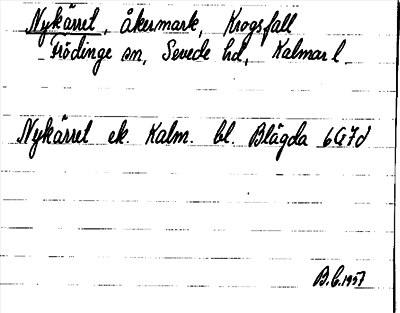 Nykärret, åkermark, Krogsfall
Frödinge sn, Sevede hd, Kalmar l.
Nykärret ek. Kalm. bl. Blågda 6G7d
B.C. 1957